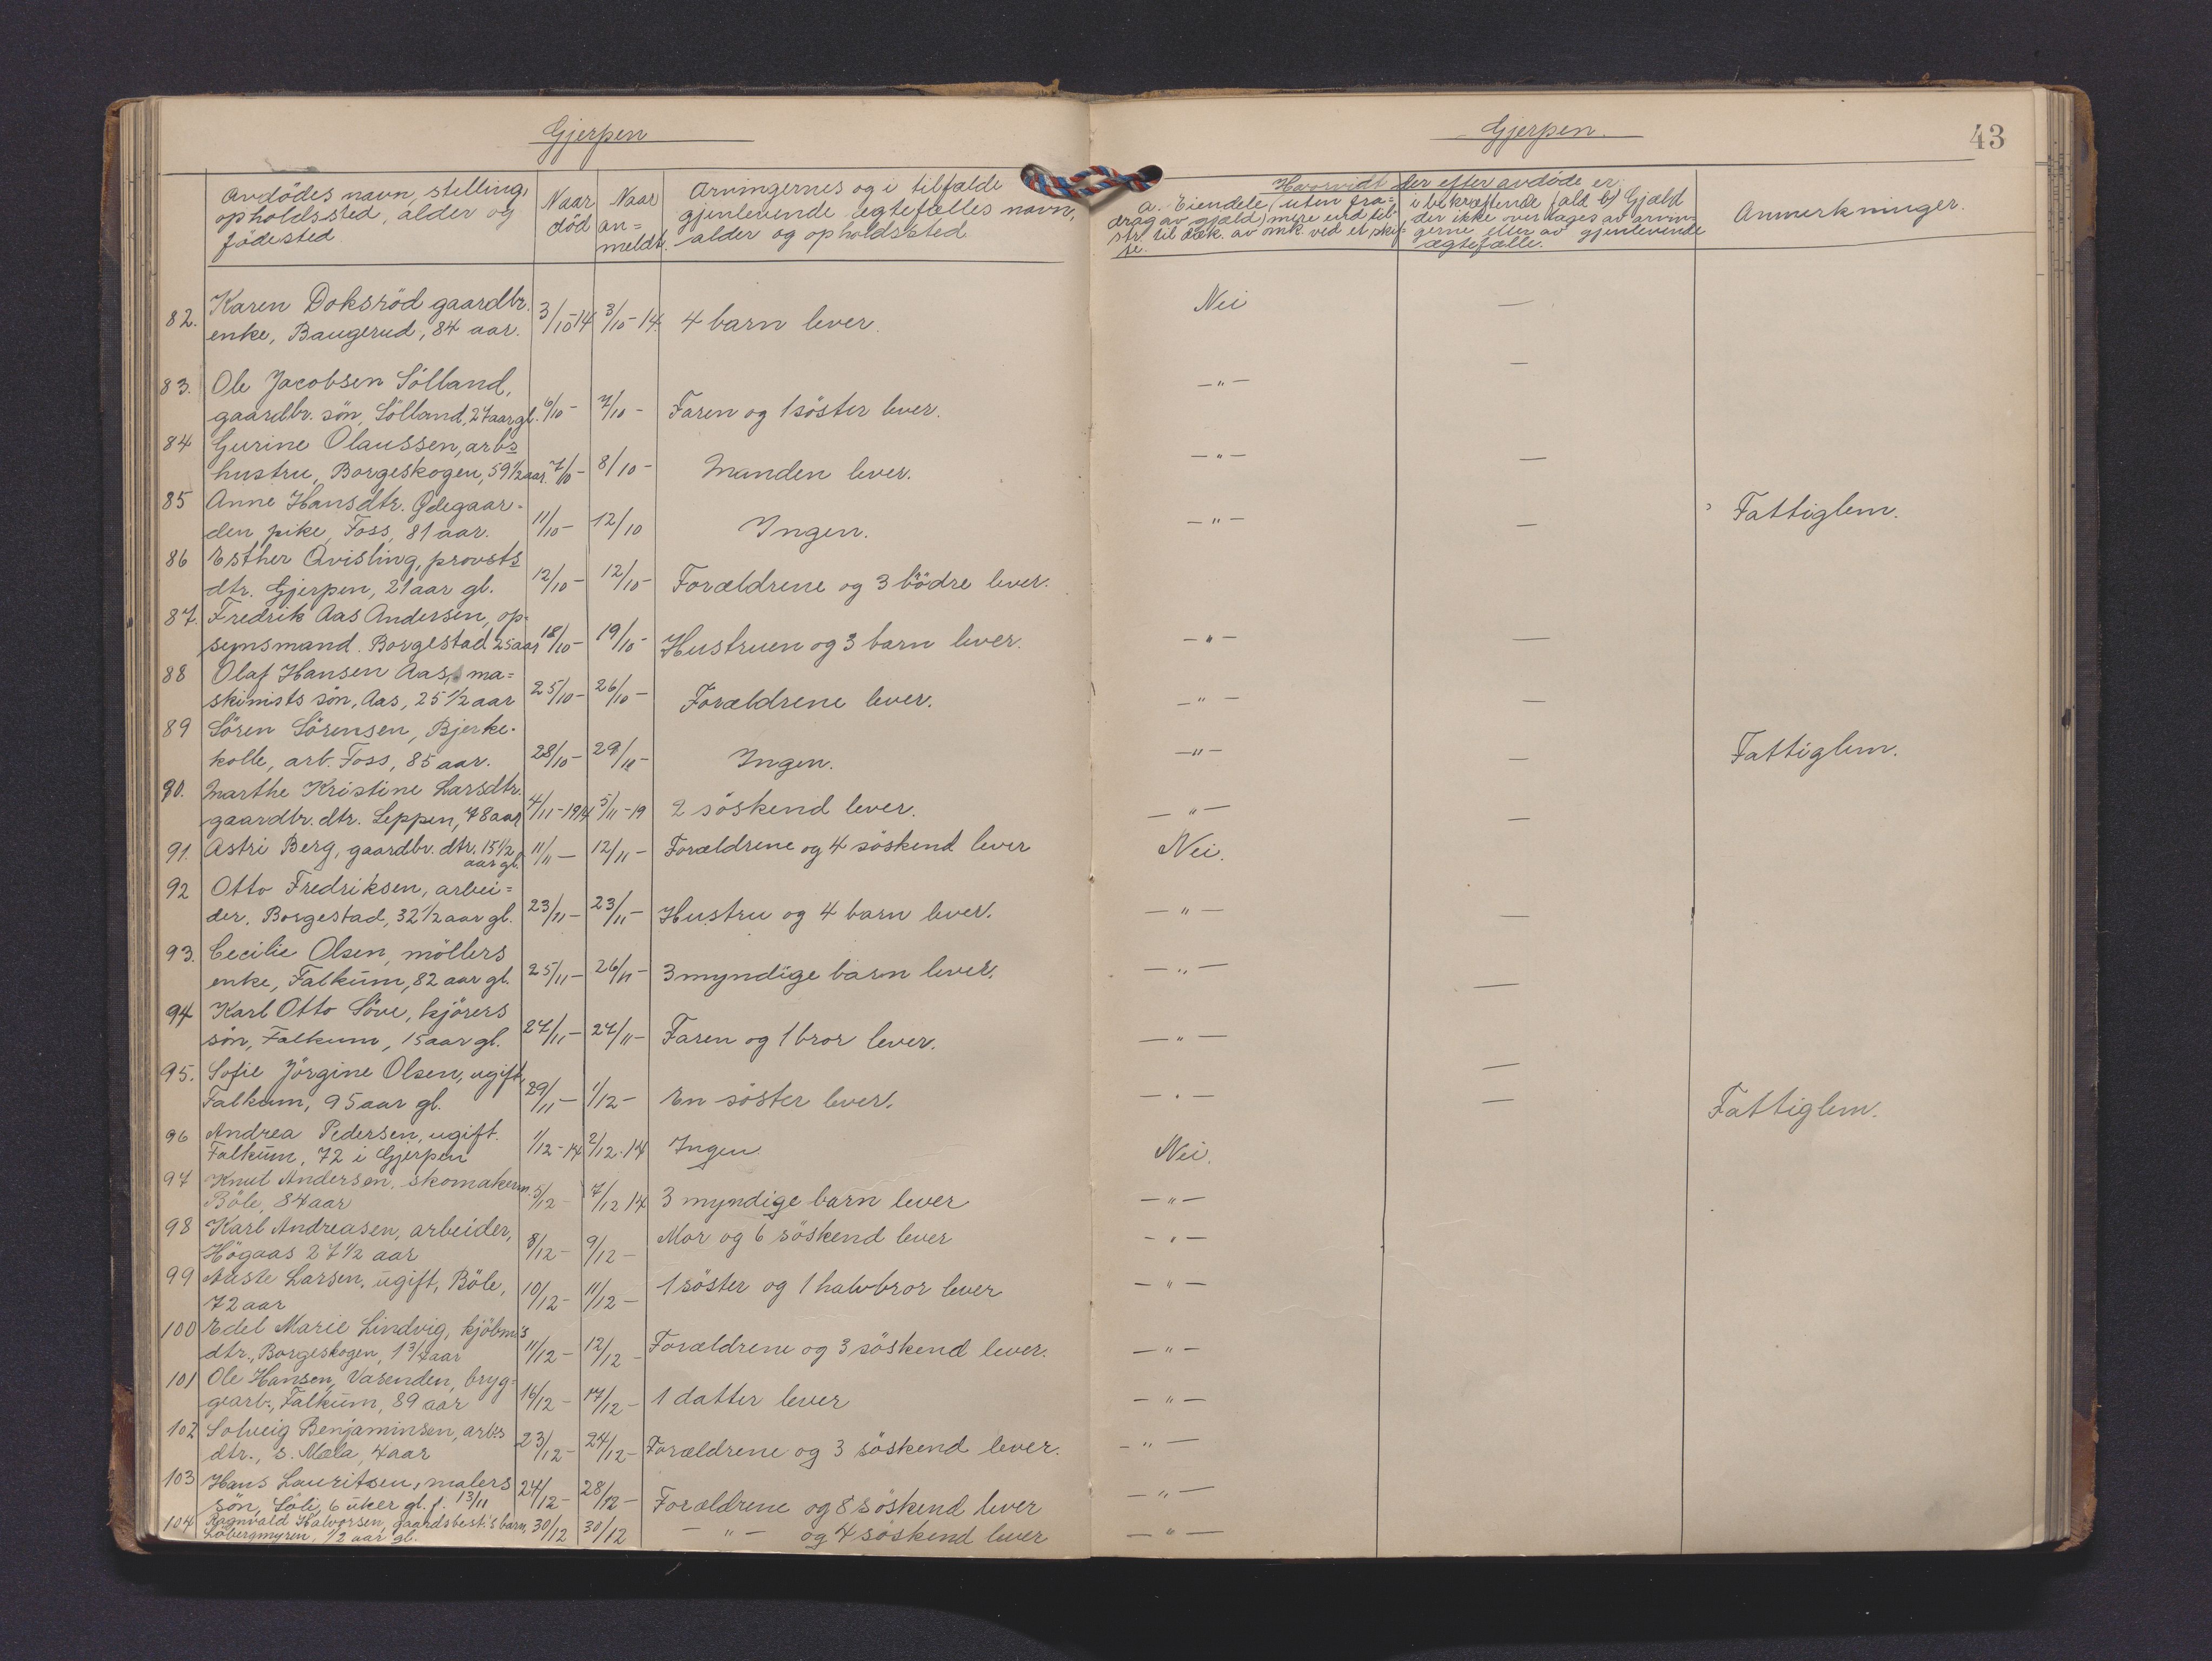 Gjerpen
Avdödes navn, stilling,
opholdssted, alder og
födested
Naar
död
Naar
an=
meldt.
Arvingernes og i tilfælde
gjenlevende ægtefælles navn,
alder og opholdssted
82. Karen Doksröd gaardbr. 3/10-14 3/10-14. 4 barn lever.
enke, Baugerud, 84 aar.
83. Ole Jacobsen Sölland,
gaardbr. sön, Sölland, 27 aar gl. 6/10- 7/10- Faren og 1 söster lever.
84 Gurine Olaussen, arbs
hustru, Borgeskogen, 59 1/2 aar. 7/10- 8/10- Manden lever.
85 Anne Hansdtr. Ødegaar-
den pike, Foss, 81 aar. 11/10- 12/10 Ingen.
86 Esther Qvisling, provsts
dtr. Gjerpen, 21 aar gl. 12/10- 12/10- Forældrene og 3 brödre lever.
87. Fredrik Aas Andersen, op-
synsmand. Borgestad 25 aar 18/10- 19/10- Hustruen og 3 barn lever.
88 Olaf Hansen Aas, ma=
skinists sön, Aas, 25 1/2 aar 25/10- 26/10- Forældrene lever.
89 Sören Sörensen, Bjerke-
kolle, arb. Foss, 85 aar. 28/10- 29/10- Ingen.
90. Marthe Kristine Larsdtr.
gaardbr. dtr. Leppen, 78 aar 4/11-1914 5/11-19 2 söskend lever.
91. Astri Berg, gaardbr. dtr. 15 1/2 11/11- 12/11- Forældrene og 4 söskend lever
aar gl.
92 Otto Fredriksen, arbei=
der, Borgestad, 32 1/2 aar gl. 23/11- 23/11- Hustru og 4 barn lever.
93. Cecilie Olsen, möllers
enke, Falkum, 82 aar gl. 25/11- 26/11- 3 myndige barn lever.
94 Karl Otto Söve, kjörers
sön, Falkum, 15 aar gl. 27/11- 27/11- Faren og 1 bror lever.
95. Sofie Jörgine Olsen, ugift,
Falkum, 95 aar gl. 29/11- 1/12- En söster lever.
96 Andrea Pedersen, ugift.
Falkum, 72 i Gjerpen 1/12-14 2/12-14 Ingen
97 Knut Andersen, skomakerm.
Böle, 84 aar 5/12- 7/12 14 3 myndige barn lever
98 Karl Andreasen, arbeider,
Högaas 27 1/2 aar 8/12- 9/12- Mor og 6 söskend lever
99 Larsen, ugift, Böle,
72 aar 10/12- 11/12- 1 söster og 1 halvbror lever
100 Edel Marie Lindvig, kjöbm's
dtr., Borgeskogen, 1 3/4 aar 11/12- 12/12- Forældrene og 3 söskend lever.
101 Ole Hansen, Varenden, bryg=
gearb., Falkum, 89 aar 16/12- 17/12- 1 datter lever
102 Solveig Benjaminsen, arb:s
dtr., S. Mæla, 4 aar 23/12- 24/12- Forældrene og 3 söskend lever.
103 Hans Lauritsen, malers
sön, Söli, 6 uker gl. f. 13/11 24/12- 28/12- Forældrene og 8 söskend lever
104 Ragnvald Halvorsen, gaardsbest.'s barn, 30/12 30/12 - " - og 4 söskend lever
Löbergmyren, 1/2 aar gl.
Gjerpen.
43
Hvorvidt der efter avdöde er
a. Eiendele (uten fra-
drag av gjæld) mere end til-
str. til dæk. av omk. ved et skif-
te.
i bekræftende fald b) Gjæld
der ikke overtages av arvin-
gerne eller av gjenlevende
ægtefælle.
Anmerkninger.
Nei —
— " — —
— " — —
— " — — Fattiglem.
— " — —
— " — —
— " — — Fattiglem.
— " — —
Nei.
— " — —
— " — —
— " — —
— " — — Fattiglem.
Nei.
— " —
— " —
— " —
— " —
— " —
— " —
— " —
— " —